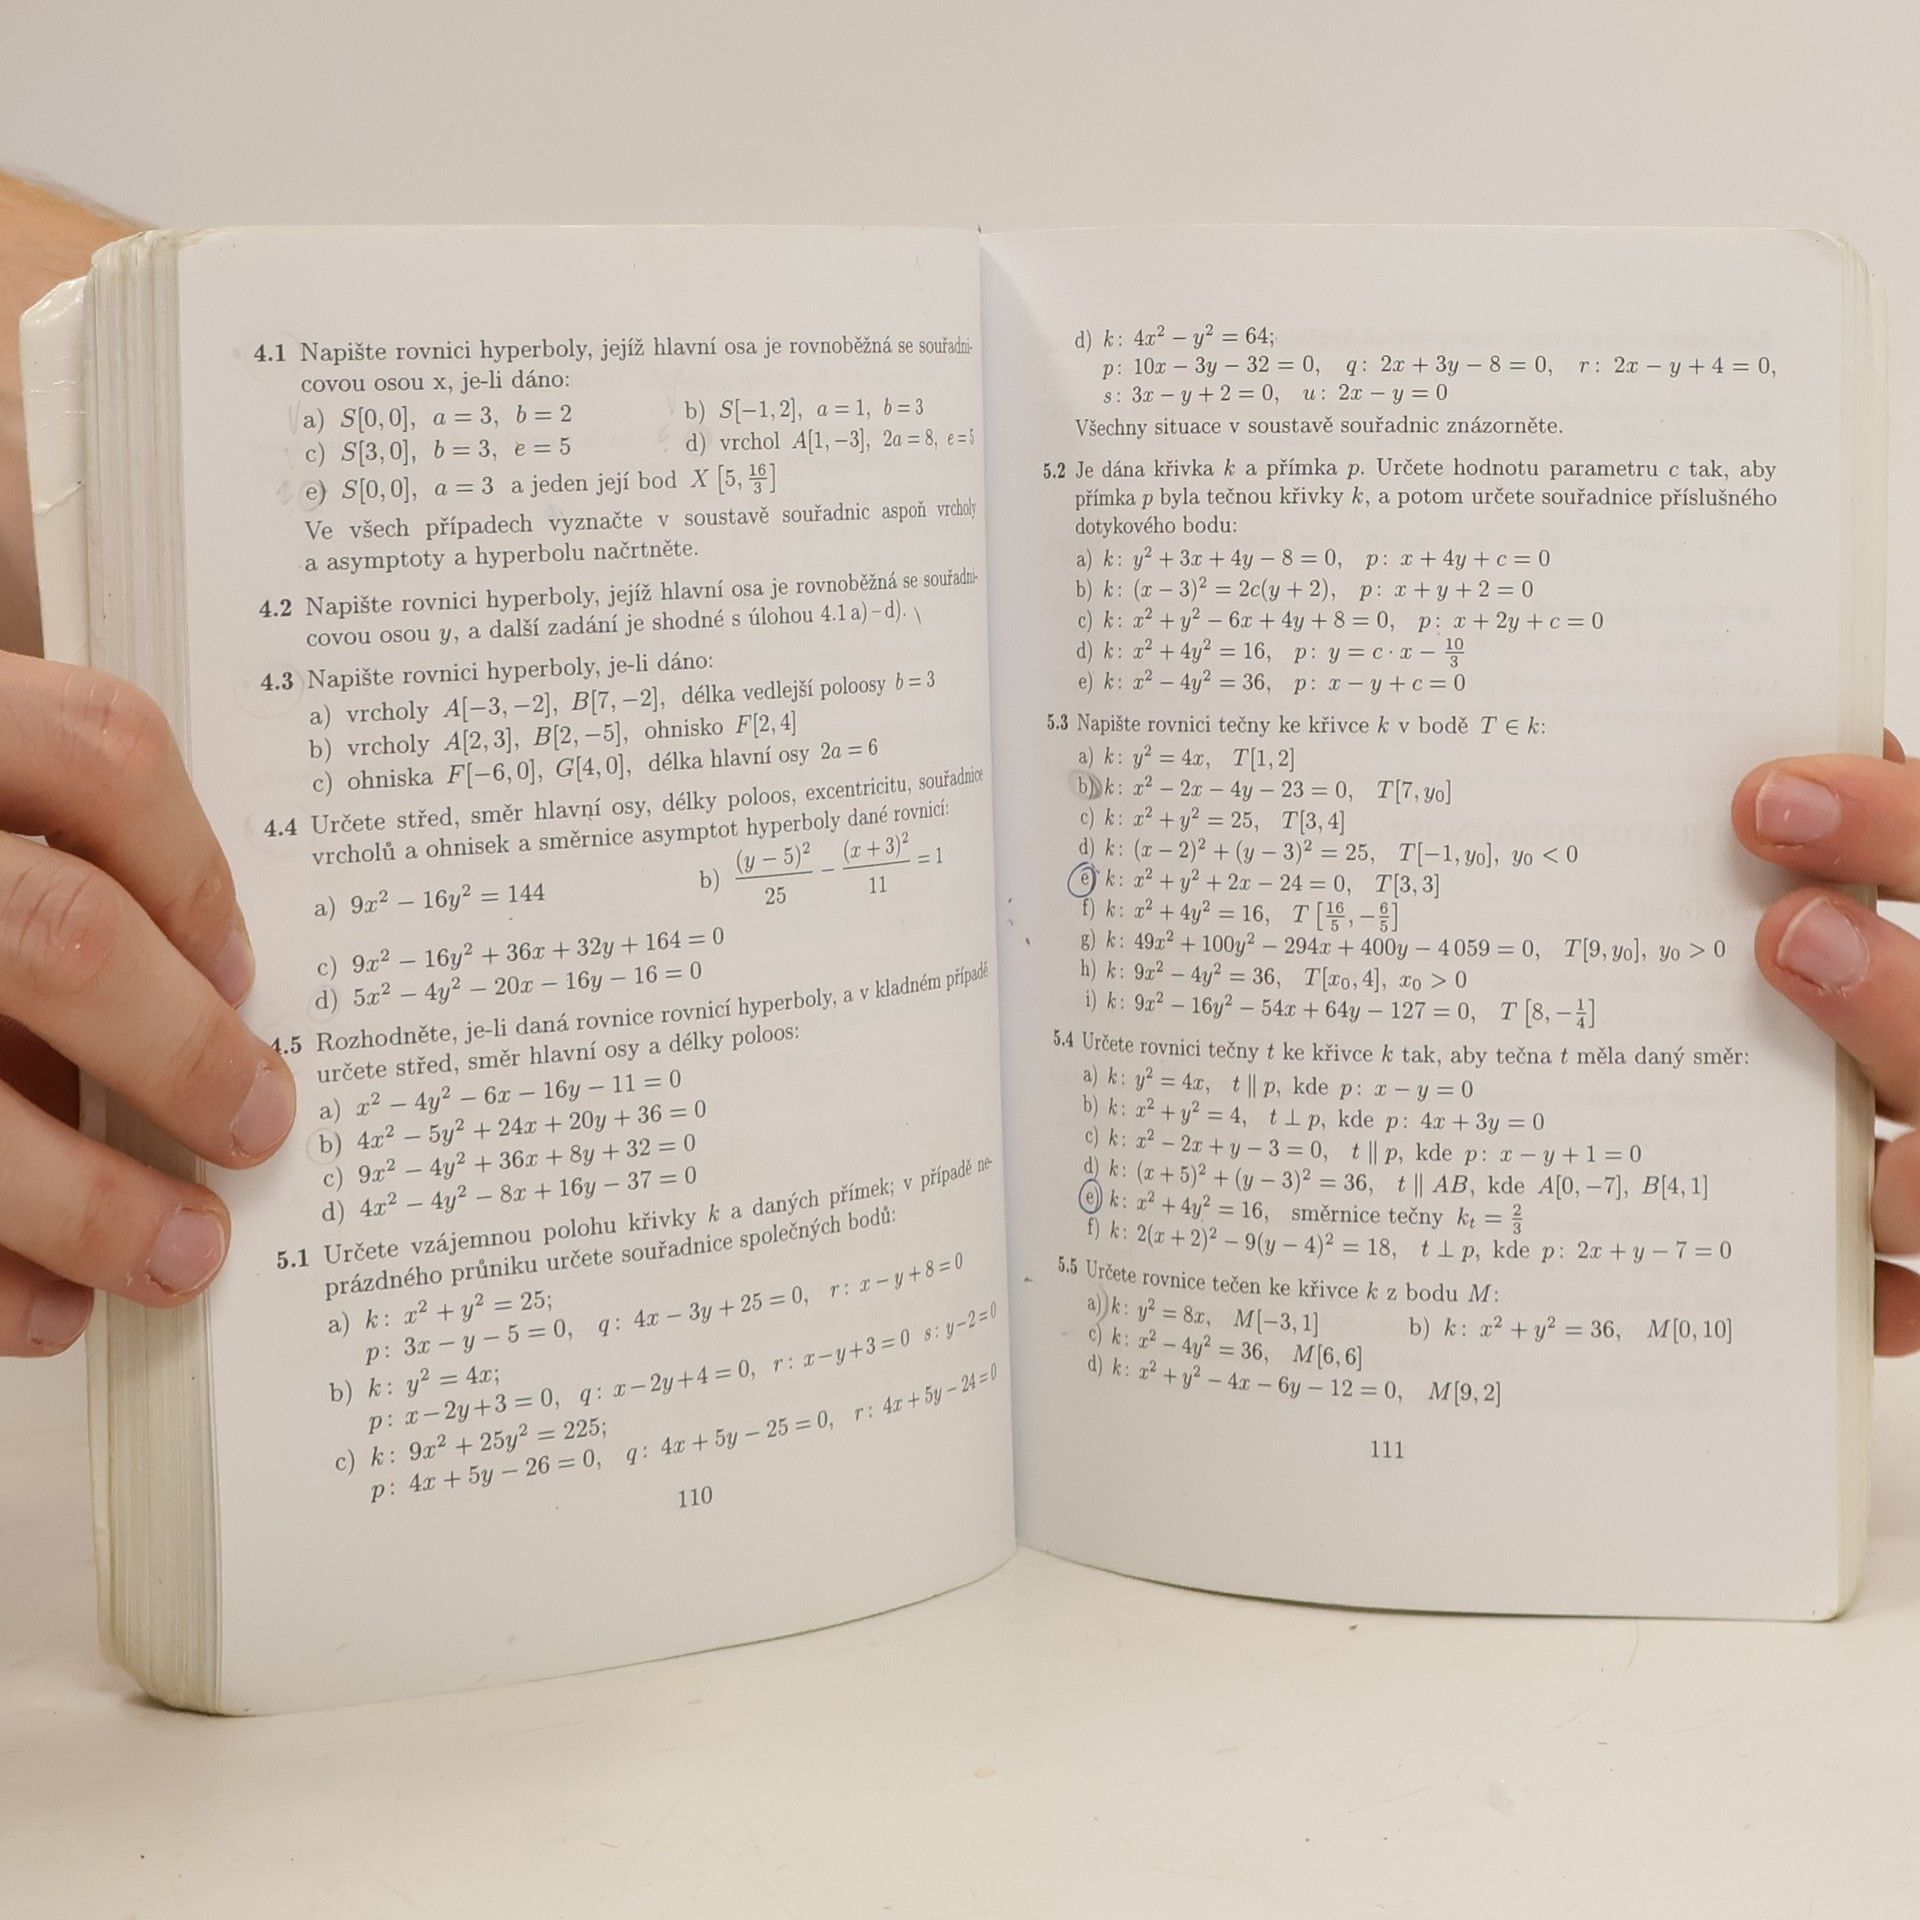 4.1 Napište rovnici hyperboly, jejíž hlavní osa je rovnoběžná se souřadni-
covou osou x, je-li dáno:
a) S[0, 0], a = 3, b = 2 b) S[−1, 2], a = 1, b = 3
c) S[3, 0], b = 3, e = 5 d) vrchol A[1, −3], 2a = 8, e = 5
e) S[0, 0], a = 3 a jeden její bod X [5, 16/3]
Ve všech případech vyznačte v soustavě souřadnic aspoň vrcholy
a asymptoty a hyperbolu načrtněte.
4.2 Napište rovnici hyperboly, jejíž hlavní osa je rovnoběžná se souřadni-
covou osou y, a další zadání je shodné s úlohou 4.1 a) – d).
4.3 Napište rovnici hyperboly, je-li dáno:
a) vrcholy A[−3, −2], B[7, −2], délka vedlejší poloosy b = 3
b) vrcholy A[2, 3], B[2, −5], ohnisko F[2, 4]
c) ohniska F[−6, 0], G[4, 0], délka hlavní osy 2a = 6
4.4 Určete střed, směr hlavní osy, délky poloos, excentricitu, souřadnice
vrcholů a ohnisek a směrnice asymptot hyperboly dané rovnicí:
a) 9x² − 16y² = 144 b) (y − 5)²/25 − (x + 3)²/11 = 1
c) 9x² − 16y² + 36x + 32y + 164 = 0
d) 5x² − 4y² − 20x − 16y − 16 = 0
4.5 Rozhodněte, je-li daná rovnice rovnicí hyperboly, a v kladném případě
určete střed, směr hlavní osy a délky poloos:
a) x² − 4y² − 6x − 16y − 11 = 0
b) 4x² − 5y² + 24x + 20y + 36 = 0
c) 9x² − 4y² + 36x + 8y + 32 = 0
d) 4x² − 4y² − 8x + 16y − 37 = 0
5.1 Určete vzájemnou polohu křivky k a daných přímek; v případě ne-
prázdného průniku určete souřadnice společných bodů:
a) k: x² + y² = 25;
p: 3x − y − 5 = 0, q: 4x − 3y + 25 = 0, r: x − y + 8 = 0
b) k: y² = 4x;
p: x − 2y + 3 = 0, q: x − 2y + 4 = 0, r: x − y + 3 = 0 s: y − 2 = 0
c) k: 9x² + 25y² = 225;
p: 4x + 5y − 26 = 0, q: 4x + 5y − 25 = 0, r: 4x + 5y − 24 = 0
110
d) k: 4x² − y² = 64;
p: 10x − 3y − 32 = 0, q: 2x + 3y − 8 = 0, r: 2x − y + 4 = 0,
s: 3x − y + 2 = 0, u: 2x − y = 0
Všechny situace v soustavě souřadnic znázorněte.
5.2 Je dána křivka k a přímka p. Určete hodnotu parametru c tak, aby
přímka p byla tečnou křivky k, a potom určete souřadnice příslušného
dotykového bodu:
a) k: y² + 3x + 4y − 8 = 0, p: x + 4y + c = 0
b) k: (x − 3)² = 2c(y + 2), p: x + y + 2 = 0
c) k: x² + y² − 6x + 4y + 8 = 0, p: x + 2y + c = 0
d) k: x² + 4y² = 16, p: y = c · x − 10/3
e) k: x² − 4y² = 36, p: x − y + c = 0
5.3 Napište rovnici tečny ke křivce k v bodě T ∈ k:
a) k: y² = 4x, T[1, 2]
b) k: x² − 2x − 4y − 23 = 0, T[7, y₀]
c) k: x² + y² = 25, T[3, 4]
d) k: (x − 2)² + (y − 3)² = 25, T[−1, y₀], y₀ < 0
e) k: x² + y² + 2x − 24 = 0, T[3, 3]
f) k: x² + 4y² = 16, T [16/5, −6/5]
g) k: 49x² + 100y² − 294x + 400y − 4 059 = 0, T[9, y₀], y₀ > 0
h) k: 9x² − 4y² = 36, T[x₀, 4], x₀ > 0
i) k: 9x² − 16y² − 54x + 64y − 127 = 0, T [8, −1/4]
5.4 Určete rovnici tečny t ke křivce k tak, aby tečna t měla daný směr:
a) k: y² = 4x, t ∥ p, kde p: x − y = 0
b) k: x² + y² = 4, t ⊥ p, kde p: 4x + 3y = 0
c) k: x² − 2x + y − 3 = 0, t ∥ p, kde p: x − y + 1 = 0
d) k: (x + 5)² + (y − 3)² = 36, t ∥ AB, kde A[0, −7], B[4, 1]
e) k: x² + 4y² = 16, směrnice tečny kₜ = 2/3
f) k: 2(x + 2)² − 9(y − 4)² = 18, t ⊥ p, kde p: 2x + y − 7 = 0
5.5 Určete rovnice tečen ke křivce k z bodu M:
a) k: y² = 8x, M[−3, 1] b) k: x² + y² = 36, M[0, 10]
c) k: x² − 4y² = 36, M[6, 6]
d) k: x² + y² − 4x − 6y − 12 = 0, M[9, 2]
111